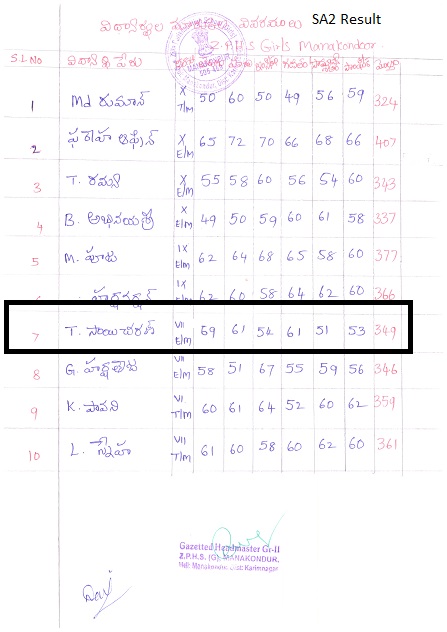 SA2 Result
విద్యార్థుల వివరాలు
Z.P.H.S Girls Manakondoor
SL.No విద్యార్థి పేరు
1 Md రుమాన్ X T/M 50 60 50 49 56 59 324
2 ఫరాహా ఆఫ్రీన్ X E/M 65 72 70 66 68 66 407
3 T. రమ్య X E/M 55 58 60 56 54 60 343
4 B. అభినయశ్రీ X E/M 49 50 59 60 61 58 337
5 M. పూజ IX E/M 62 64 68 65 58 60 377
హర్షవర్ధన్ IX E/M 62 60 58 64 62 60 366
7 T. సాయిచరణ్ VII E/M 69 61 54 61 51 53 349
8 G. హర్షిత VII E/M 58 51 67 55 59 56 346
9 K. పావని VI T/M 60 61 64 52 60 62 359
10 L. స్నేహా VII T/M 61 60 58 60 62 60 361
Gazetted Headmaster Gr-II
Z.P.H.S. (G). MANAKONDUR,
Mdl: Manakondur, Dist: Karimnagar